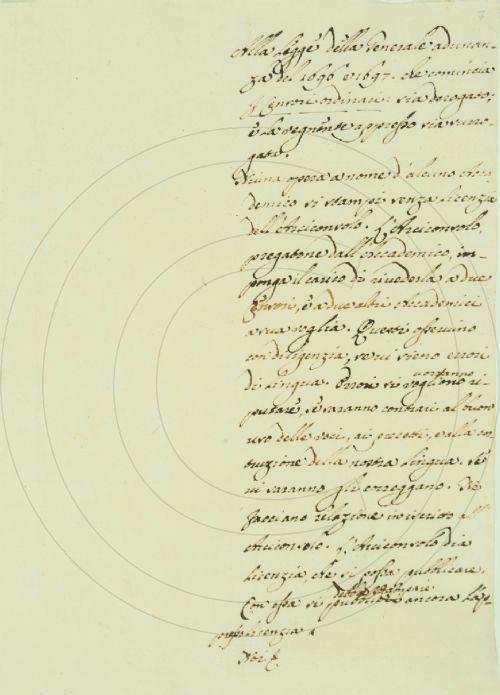 7
Alla legge della Generale adunan-
za del 1696 e 1697. che comincia
I Censori ordinarii: sia derogato;
e la vegnente appresso sia surro-
gata.
Niuna opera a nome d'alcuno Acca
demico si stampi senza licenza
dell'Arciconsolo. L'Arciconsolo
pregatone dall'Accademico, im-
ponga il carico di rivederla a due
Censori, e a due altri Accademici
a sua voglia. Questi osservino
con diligenzia, se vi sieno errori
di lingua. Errori si vogliono ri-
vorranno
putare, se saranno contrari al buon
uso delle voci, ai precetti, e alla co-
stuzione della nostra lingua. Se
vi saranno gli correggano. Ne
facciano relazione in iscritto all
Arciconsolo. L'Arciconsolo dia
licenzia, che si possa pubblicare.
Con essa si ancora la
licenzia.